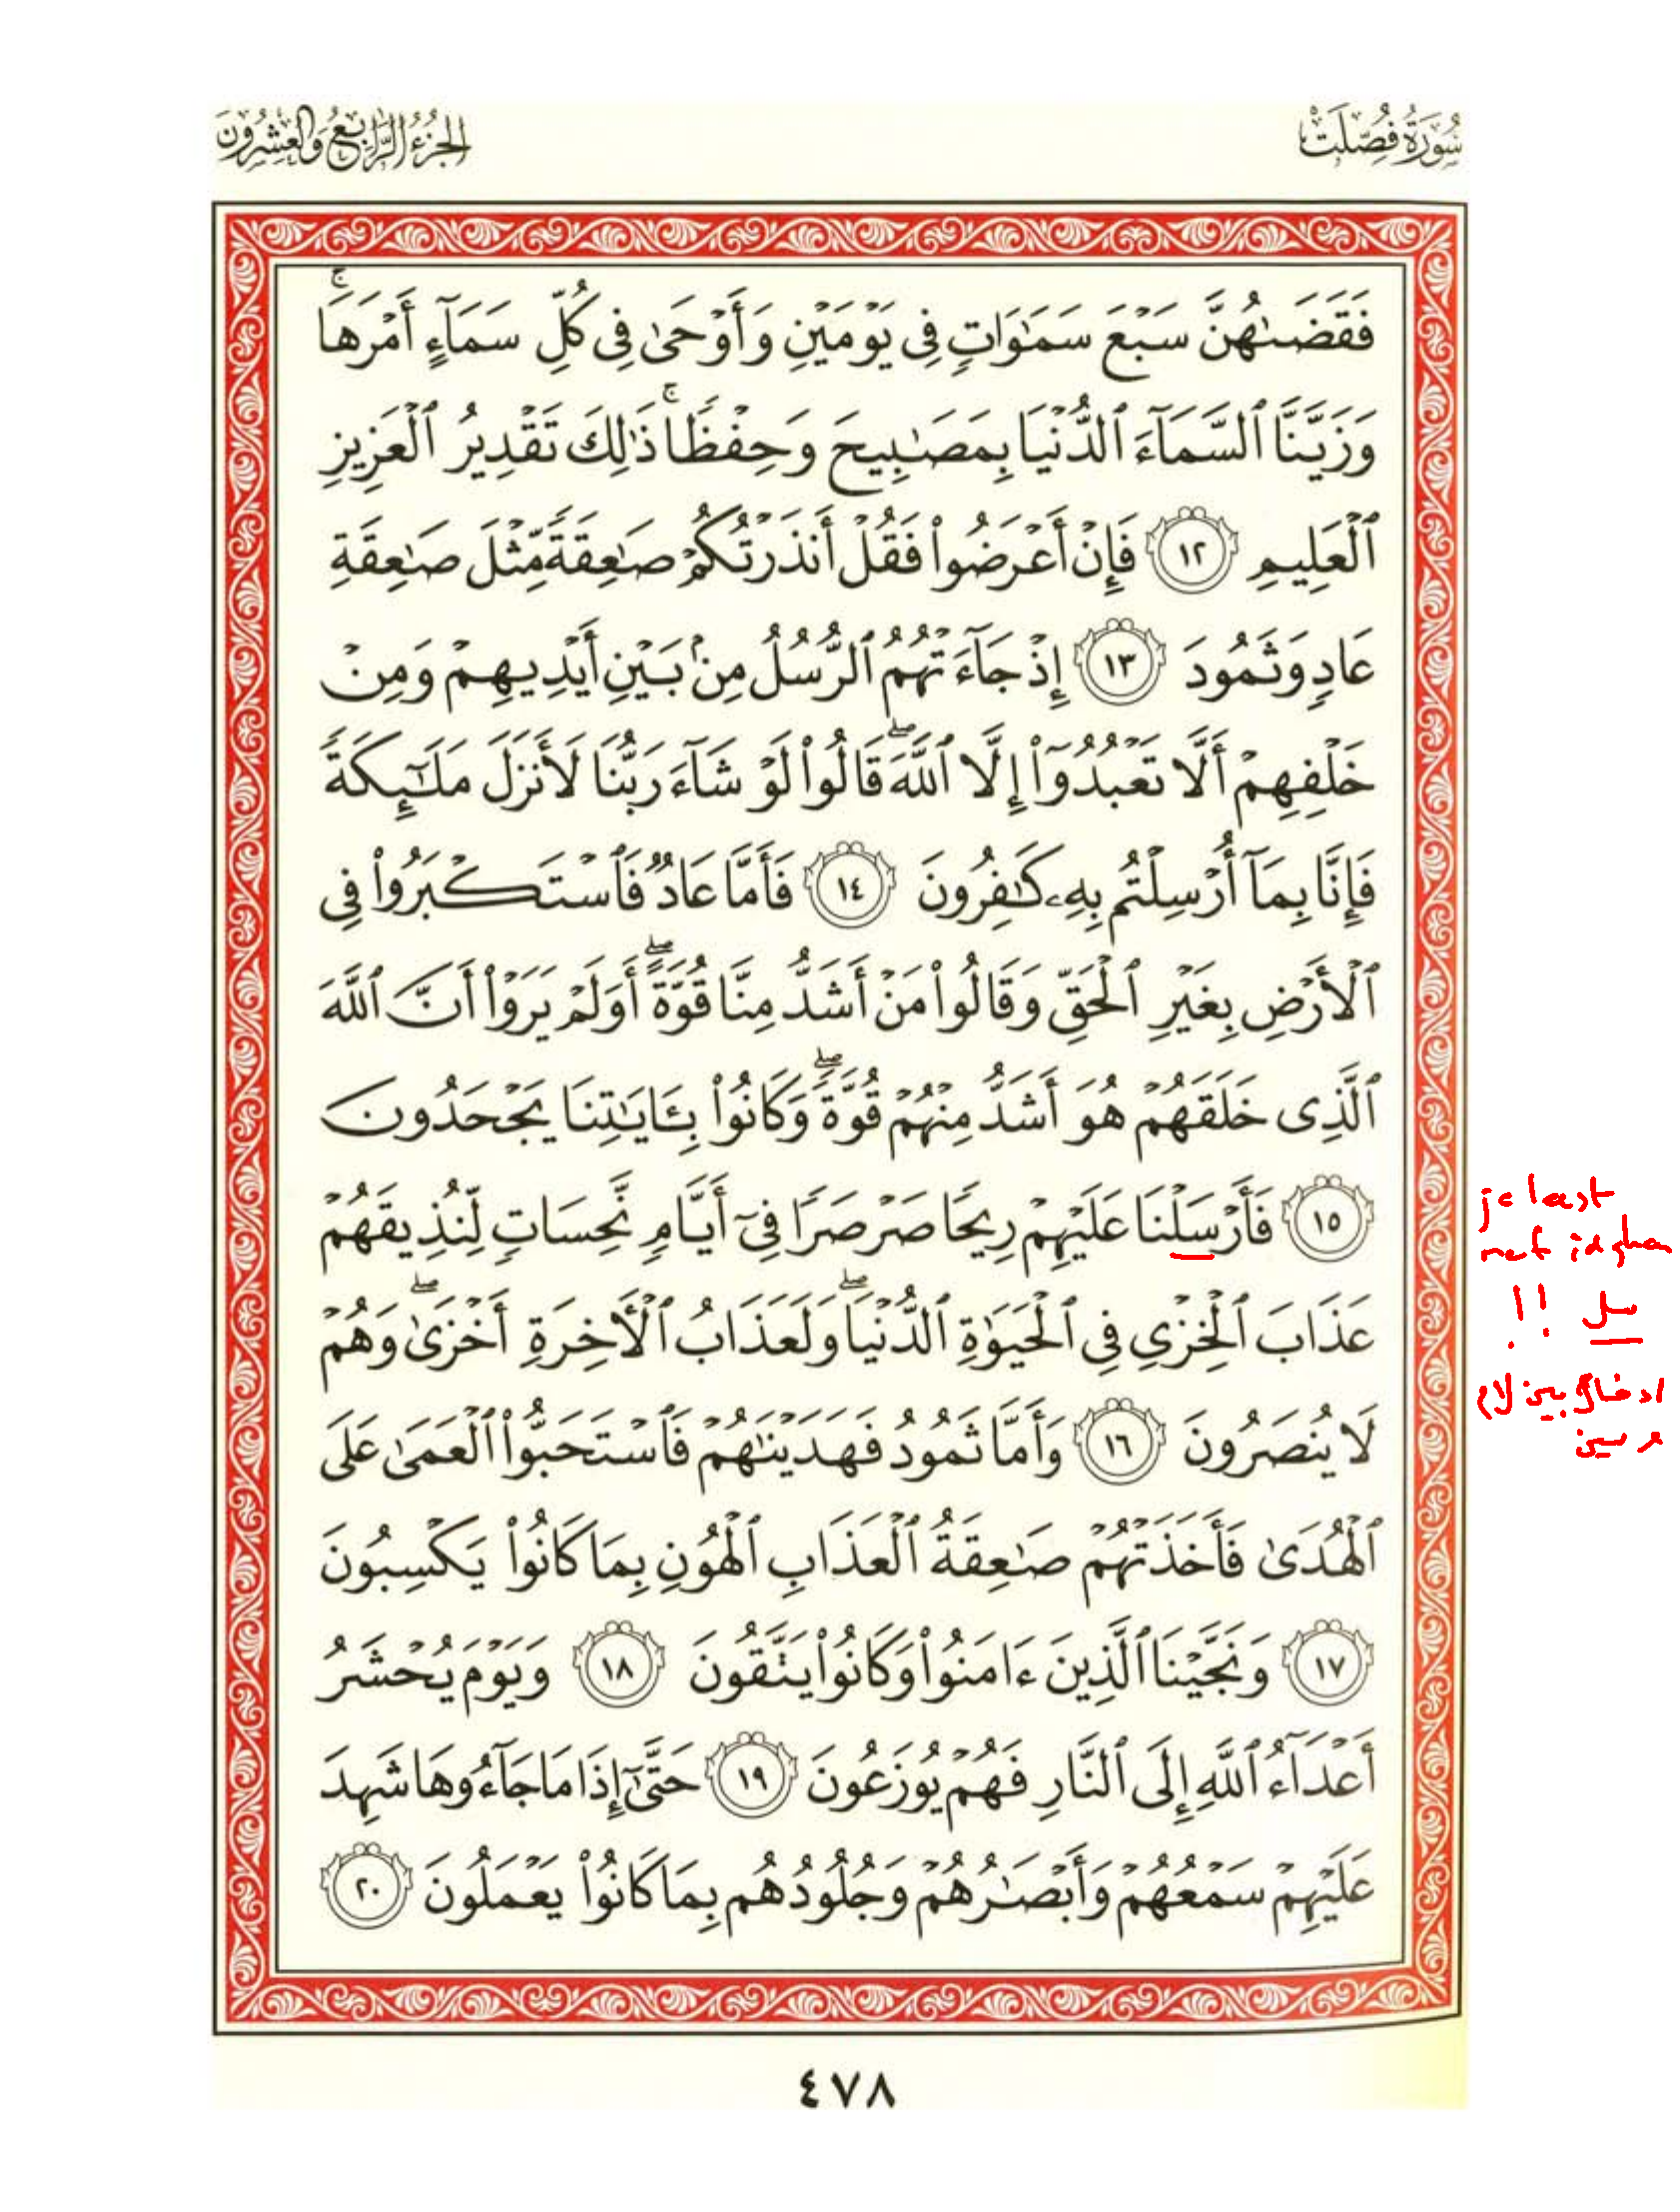 سُورَةُ فُصِّلَتْ
الجُزْءُ الرَّابِعُ وَالعِشْرُونَ
فَقَضَىٰهُنَّ سَبْعَ سَمَٰوَاتٍ فِى يَوْمَيْنِ وَأَوْحَىٰ فِى كُلِّ سَمَآءٍ أَمْرَهَا ۚ
وَزَيَّنَّا ٱلسَّمَآءَ ٱلدُّنْيَا بِمَصَٰبِيحَ وَحِفْظًا ۚ ذَٰلِكَ تَقْدِيرُ ٱلْعَزِيزِ
ٱلْعَلِيمِ ١٢ فَإِنْ أَعْرَضُوا۟ فَقُلْ أَنذَرْتُكُمْ صَٰعِقَةً مِّثْلَ صَٰعِقَةِ
عَادٍ وَثَمُودَ ١٣ إِذْ جَآءَتْهُمُ ٱلرُّسُلُ مِنۢ بَيْنِ أَيْدِيهِمْ وَمِنْ
خَلْفِهِمْ أَلَّا تَعْبُدُوٓا۟ إِلَّا ٱللَّهَ ۖ قَالُوا۟ لَوْ شَآءَ رَبُّنَا لَأَنزَلَ مَلَٰٓئِكَةً
فَإِنَّا بِمَآ أُرْسِلْتُم بِهِۦ كَٰفِرُونَ ١٤ فَأَمَّا عَادٌ فَٱسْتَكْبَرُوا۟ فِى
ٱلْأَرْضِ بِغَيْرِ ٱلْحَقِّ وَقَالُوا۟ مَنْ أَشَدُّ مِنَّا قُوَّةً ۖ أَوَلَمْ يَرَوْا۟ أَنَّ ٱللَّهَ
ٱلَّذِى خَلَقَهُمْ هُوَ أَشَدُّ مِنْهُمْ قُوَّةً ۖ وَكَانُوا۟ بِـَٔايَٰتِنَا يَجْحَدُونَ
١٥ فَأَرْسَلْنَا عَلَيْهِمْ رِيحًا صَرْصَرًا فِىٓ أَيَّامٍ نَّحِسَاتٍ لِّنُذِيقَهُمْ
عَذَابَ ٱلْخِزْىِ فِى ٱلْحَيَوٰةِ ٱلدُّنْيَا ۖ وَلَعَذَابُ ٱلْأَخِرَةِ أَخْزَىٰ ۖ وَهُمْ
لَا يُنصَرُونَ ١٦ وَأَمَّا ثَمُودُ فَهَدَيْنَٰهُمْ فَٱسْتَحَبُّوا۟ ٱلْعَمَىٰ عَلَى
ٱلْهُدَىٰ فَأَخَذَتْهُمْ صَٰعِقَةُ ٱلْعَذَابِ ٱلْهُونِ بِمَا كَانُوا۟ يَكْسِبُونَ
١٧ وَنَجَّيْنَا ٱلَّذِينَ ءَامَنُوا۟ وَكَانُوا۟ يَتَّقُونَ ١٨ وَيَوْمَ يُحْشَرُ
أَعْدَآءُ ٱللَّهِ إِلَى ٱلنَّارِ فَهُمْ يُوزَعُونَ ١٩ حَتَّىٰٓ إِذَا مَا جَآءُوهَا شَهِدَ
عَلَيْهِمْ سَمْعُهُمْ وَأَبْصَٰرُهُمْ وَجُلُودُهُم بِمَا كَانُوا۟ يَعْمَلُونَ ٢٠
je leest
met idgham
سل !!
ادغام بين لام
و سين
٤٧٨